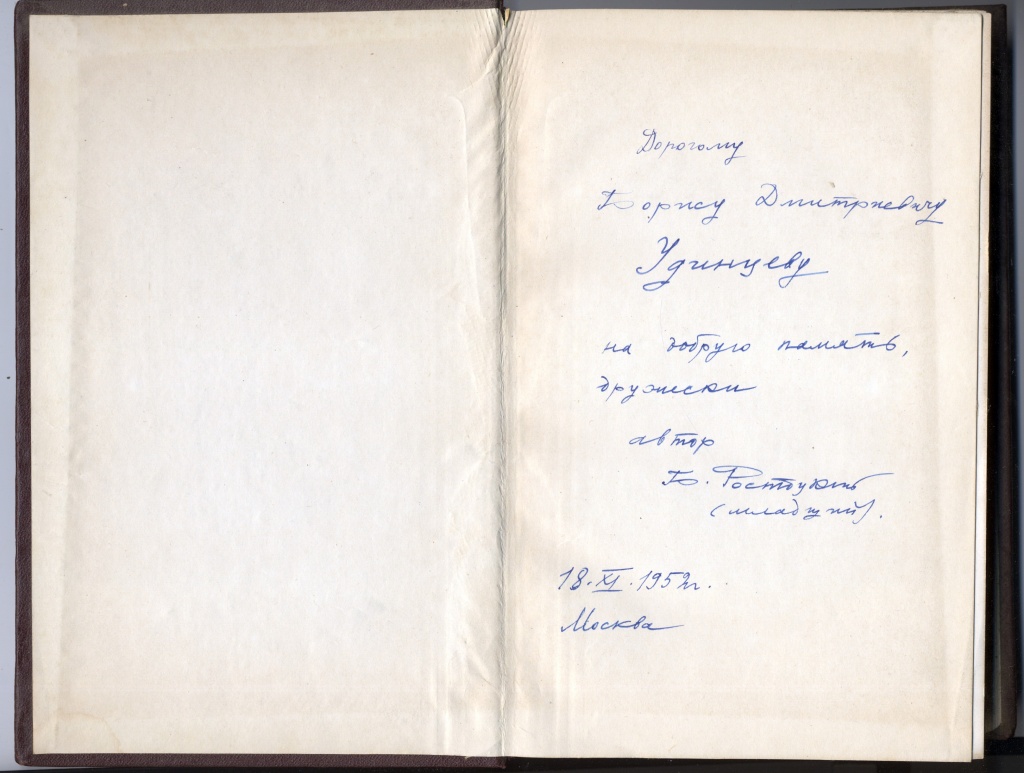 Дорогому
Борису Дмитриевичу
Удинцеву
на добрую память,
дружески
автор
Б. Ростоцкий
(младший).
18.XI.1952г.
Москва